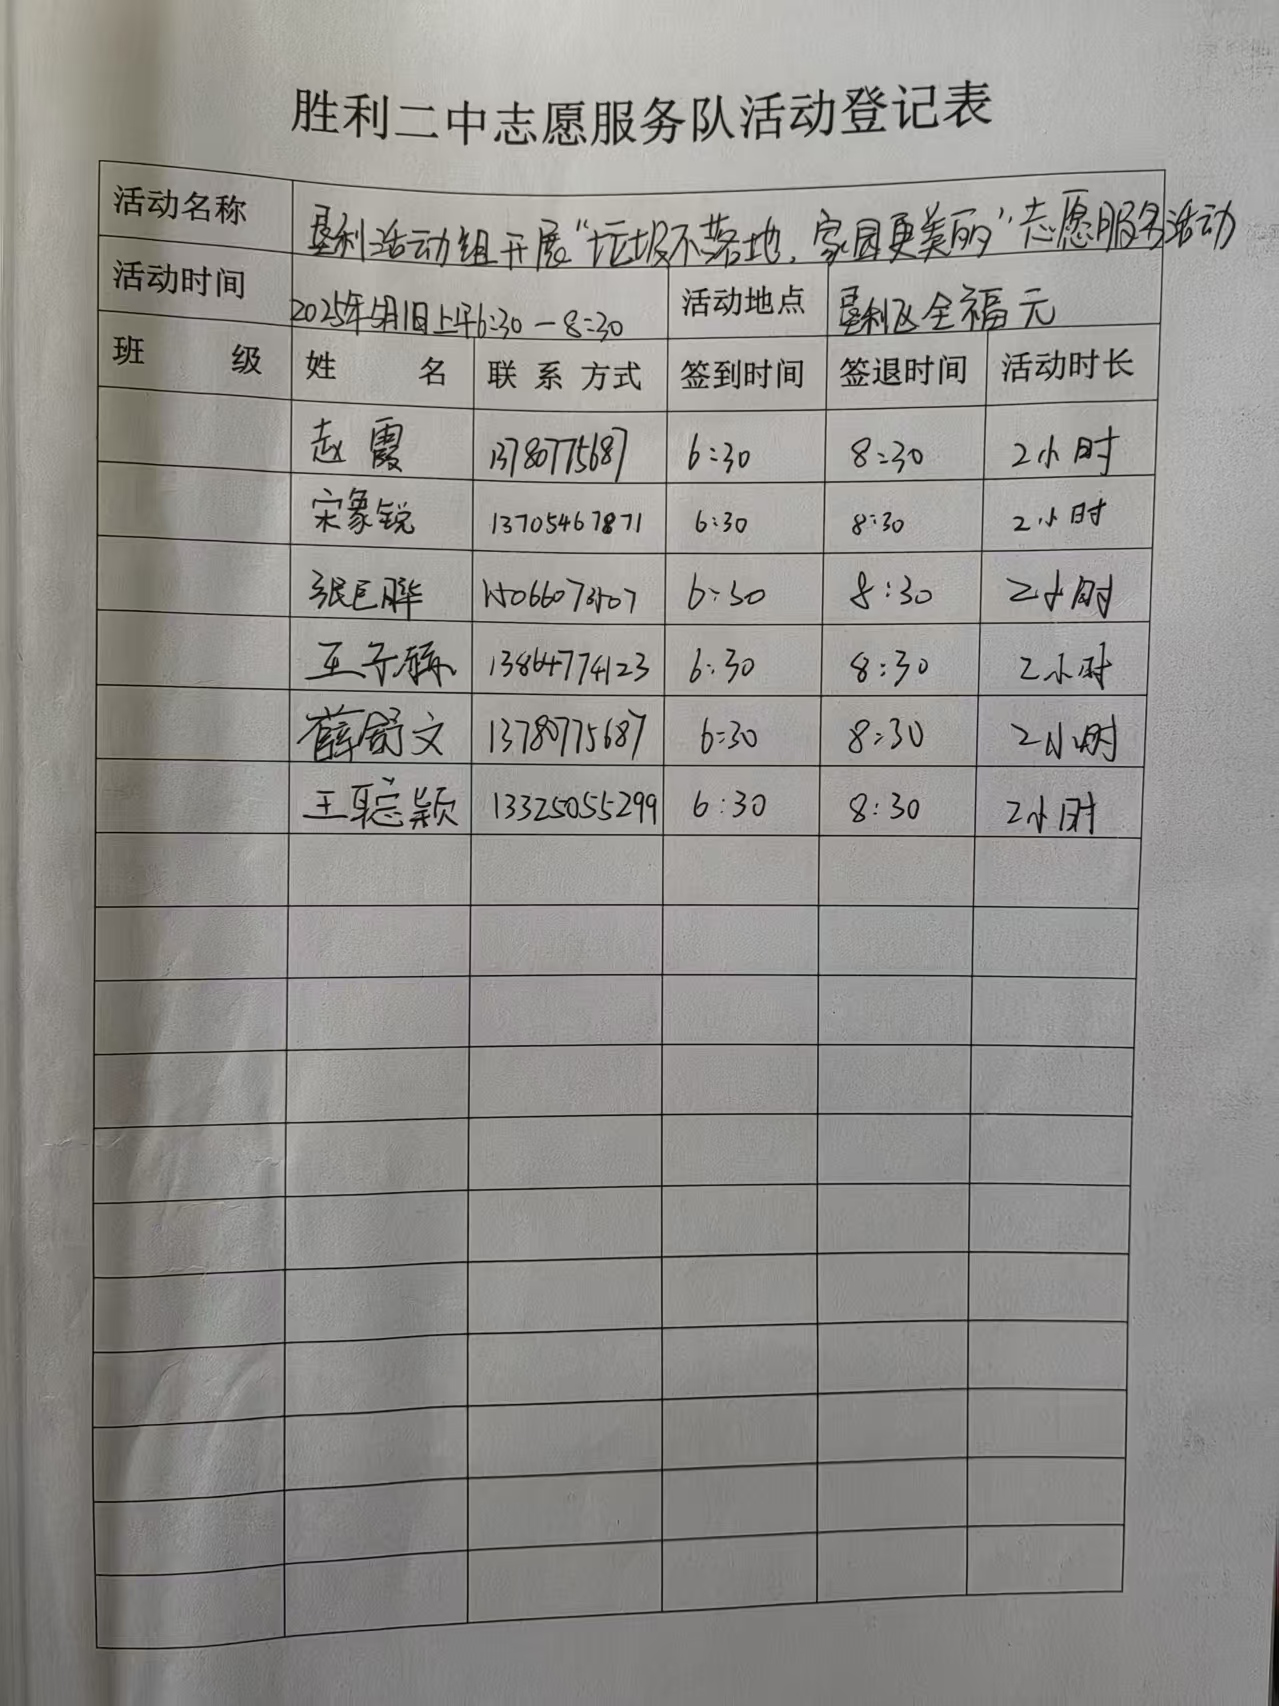 胜利二中志愿服务队活动登记表
活动名称 垦利活动组开展“垃圾不落地,家园更美丽”志愿服务活动
活动时间 2025年5月1日上午6:30-8:30 活动地点 垦利区全福元
班级 姓名 联系方式 签到时间 签退时间 活动时长
赵霞 13780775687 6:30 8:30 2小时
宋象锐 13705467871 6:30 8:30 2小时
张巨骅 6:30 8:30 2小时
王子 13864774123 6:30 8:30 2小时
薛舒文 13780775687 6:30 8:30 2小时
王聪颖 13325055299 6:30 8:30 2小时